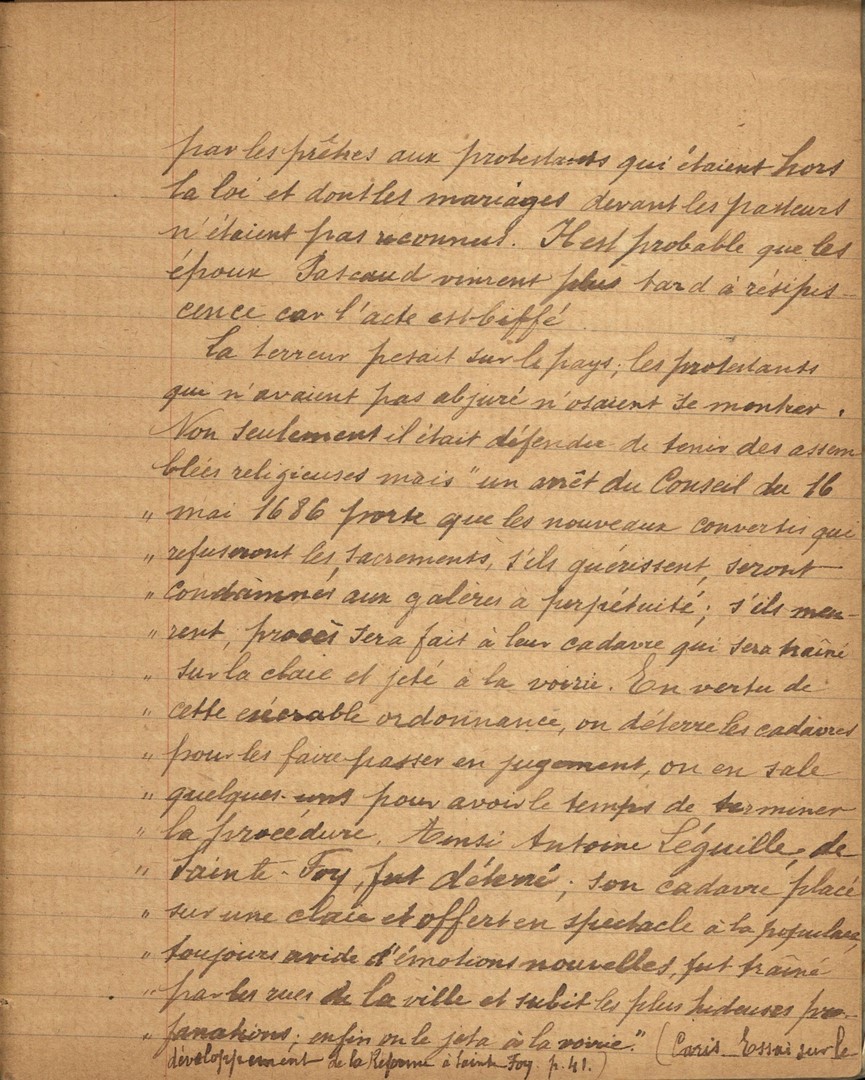 par les prêtres aux protestants qui étaient hors
la loi et dont les mariages devant les pasteurs
n'étaient pas reconnus. Il est probable que les
époux Pascaud vinrent plus tard à résipis-
cence car l'acte est biffé
La terreur pesait sur le pays; les protestants
qui n'avaient pas abjuré n'osaient se montrer.
Non seulement il était défendu de tenir des assem
blées religieuses mais "un arrêt du Conseil du 16
" mai 1686 porte que les nouveaux convertis qui
" refuseront les sacrements, s'ils guérissent, seront
" condamnés aux galères à perpétuité; s'ils meu-
" rent, procès sera fait à leur cadavre qui sera traîné
" sur la claie et jeté à la voirie. En vertu de
" cette exécrable ordonnance, on déterre les cadavres
" pour les faire passer en jugement, on en sale
" quelques-uns pour avoir le temps de terminer
" la procédure. Ainsi Antoine Léguille, de
" Sainte-Foy, fut déterré; son cadavre placé
" sur une claie et offert en spectacle à la populace,
" toujours avide d'émotions nouvelles, fut traîné
" par les rues de la ville et subit les plus hideuses pro-
" fanations; enfin on le jeta à la voirie." (Caris. Essai sur le
développement de la Réforme à Sainte Foy. p. 41.)